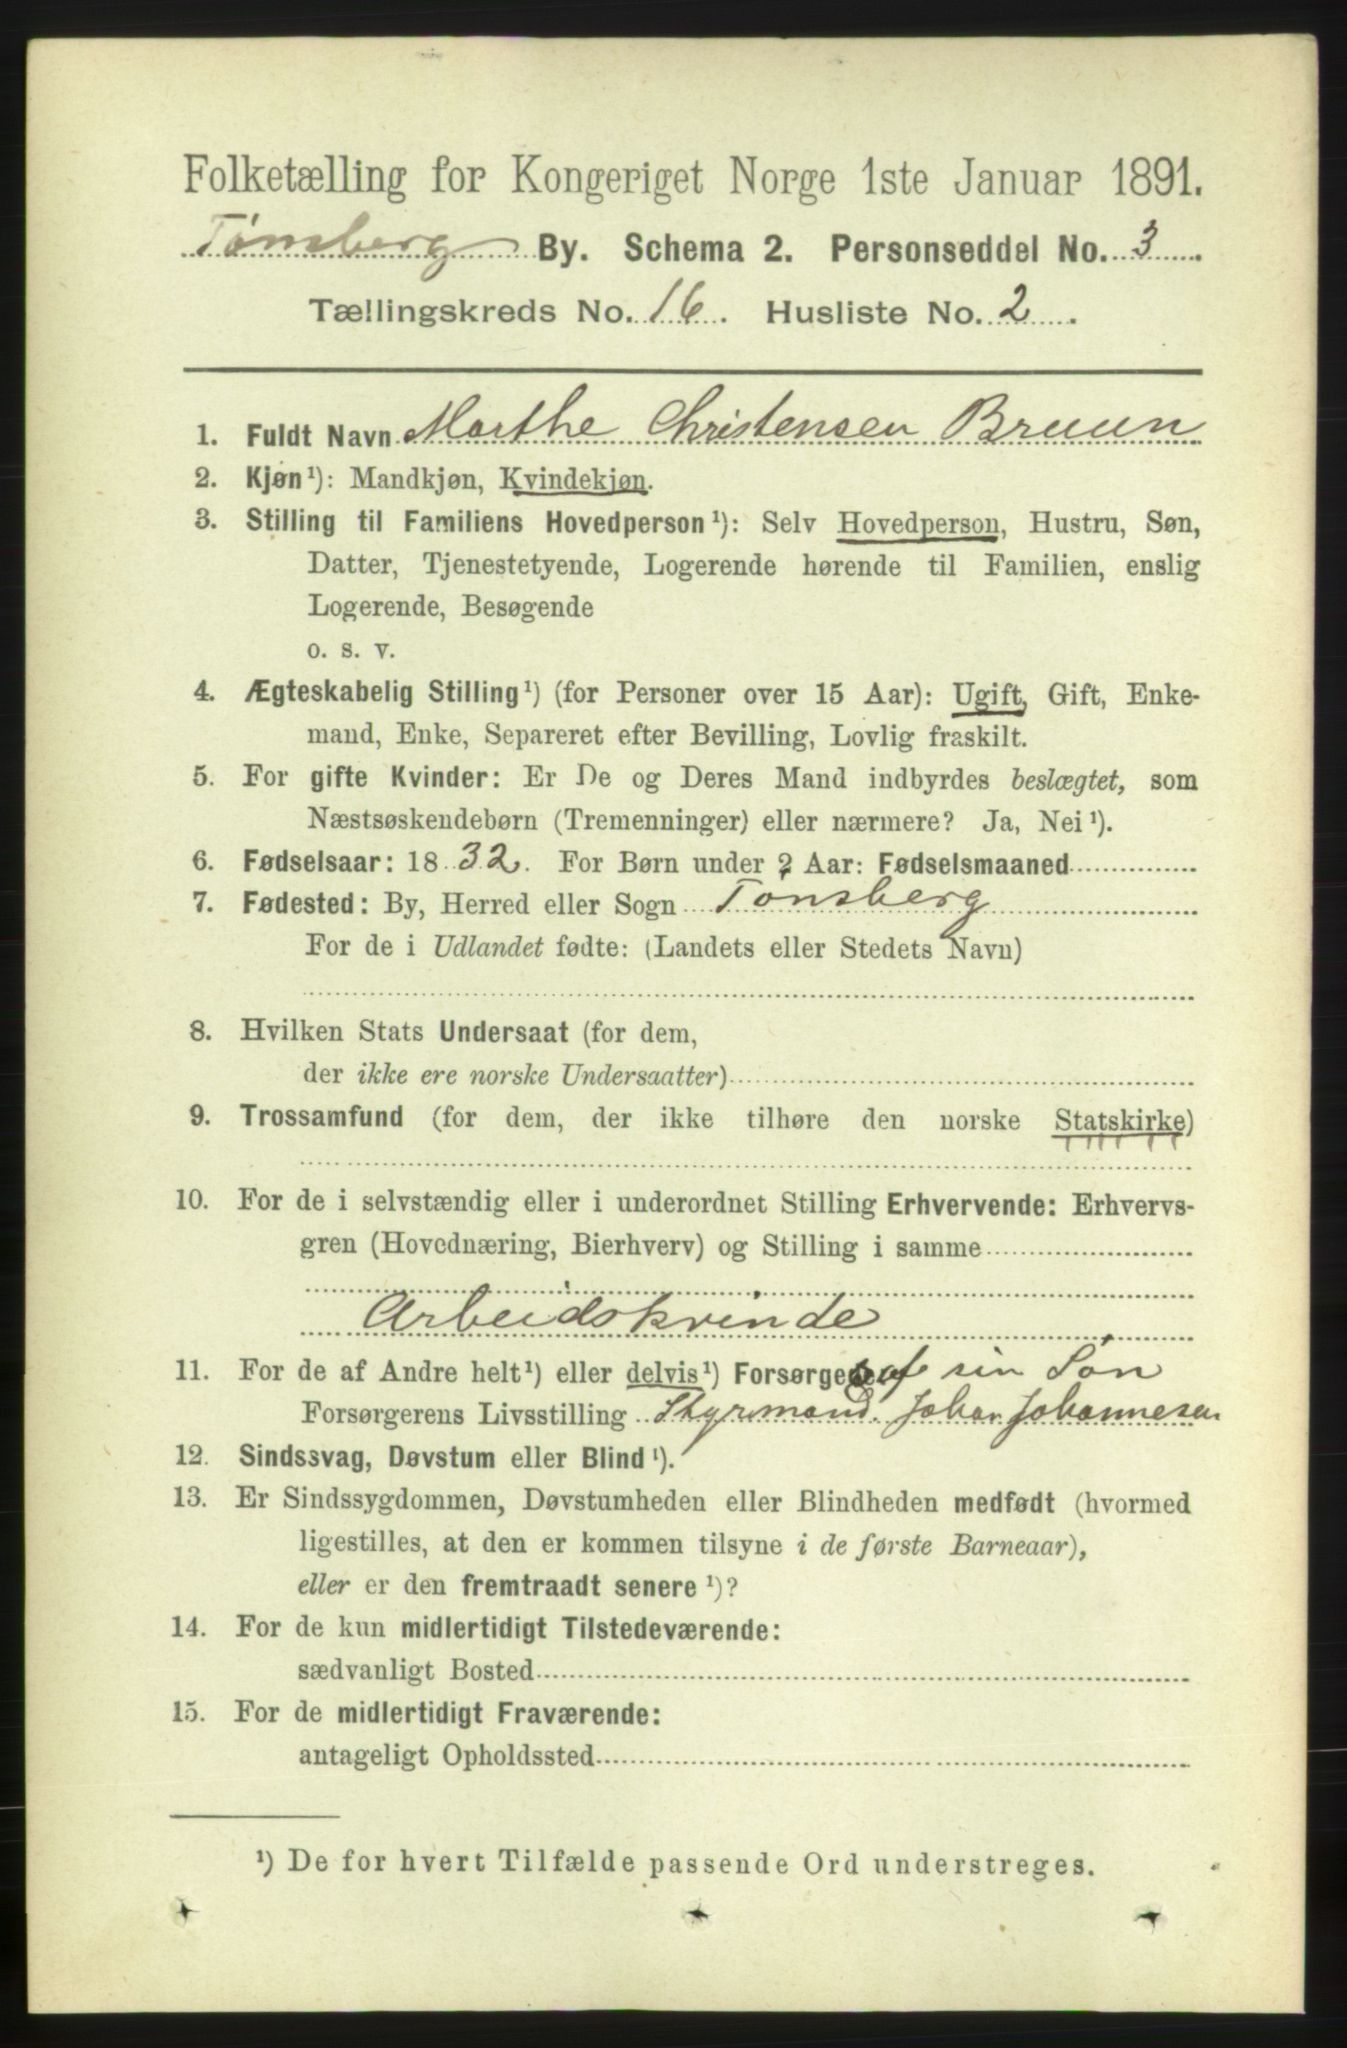 Folketælling for Kongeriget Norge 1ste Januar 1891.
Tønsberg By. Schema 2. Personseddel No. 3
Tællingskreds No. 16. Husliste No. 2.
1. Fuldt Navn Marthe Christensen Bruun
2. Kjøn¹): Mandkjøn, Kvindekjøn.
3. Stilling til Familiens Hovedperson¹): Selv Hovedperson, Hustru, Søn,
Datter, Tjenestetyende, Logerende hørende til Familien, enslig
Logerende, Besøgende
o. s. v.
4. Ægteskabelig Stilling¹) (for Personer over 15 Aar): Ugift, Gift, Enke-
mand, Enke, Separeret efter Bevilling, Lovlig fraskilt.
5. For gifte Kvinder: Er De og Deres Mand indbyrdes beslægtet, som
Næstsøskendebørn (Tremenninger) eller nærmere? Ja, Nei¹).
6. Fødselsaar: 1832. For Børn under 2 Aar: Fødselsmaaned
7. Fødested: By, Herred eller Sogn Tønsberg
For de i Udlandet fødte: (Landets eller Stedets Navn)
8. Hvilken Stats Undersaat (for dem,
der ikke ere norske Undersaatter)
9. Trossamfund (for dem, der ikke tilhøre den norske Statskirke)
10. For de i selvstændig eller i underordnet Stilling Erhvervende: Erhvervs-
gren (Hovednæring, Bierhverv) og Stilling i samme
Arbeidskvinde
11. For de af Andre helt¹) eller delvis¹) Forsørgede af sin Søn
Forsørgerens Livsstilling Styrmand. Johan Johannesen
12. Sindssvag, Døvstum eller Blind¹).
13. Er Sindssygdommen, Døvstumheden eller Blindheden medfødt (hvormed
ligestilles, at den er kommen tilsyne i de første Barneaar),
eller er den fremtraadt senere¹)?
14. For de kun midlertidigt Tilstedeværende:
sædvanligt Bosted
15. For de midlertidigt Fraværende:
antageligt Opholdssted
¹) De for hvert Tilfælde passende Ord understreges.